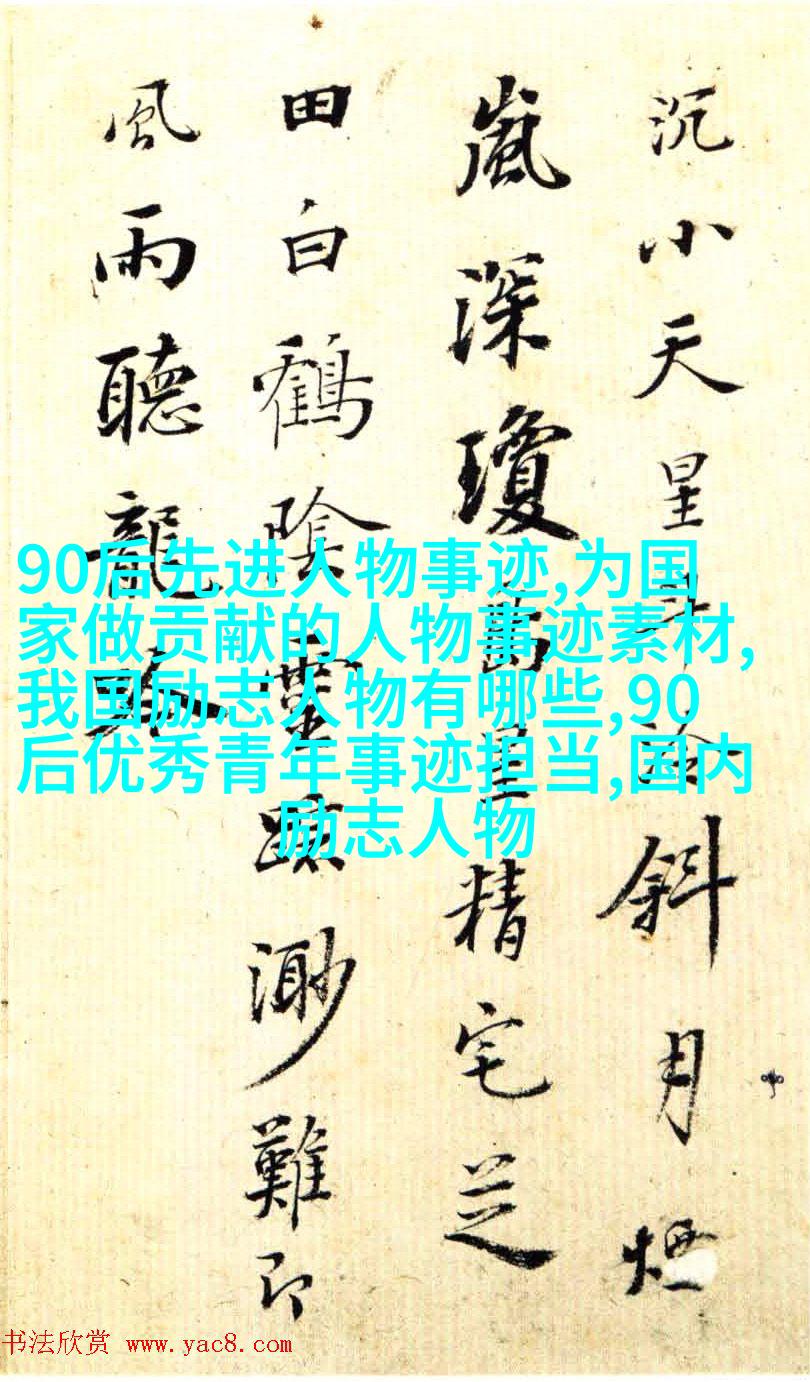 沉小天星斗冷斜月煙
嵐深瓊精宅芝
田白鶴陰靈渺難即
風雨聽龍
90后先进人物事迹,为国
家做贡献的人物事迹素材,
我国励志人物有哪些,90
后优秀青年事迹担当,国内
励志人物
书法欣赏 www.yac8.com